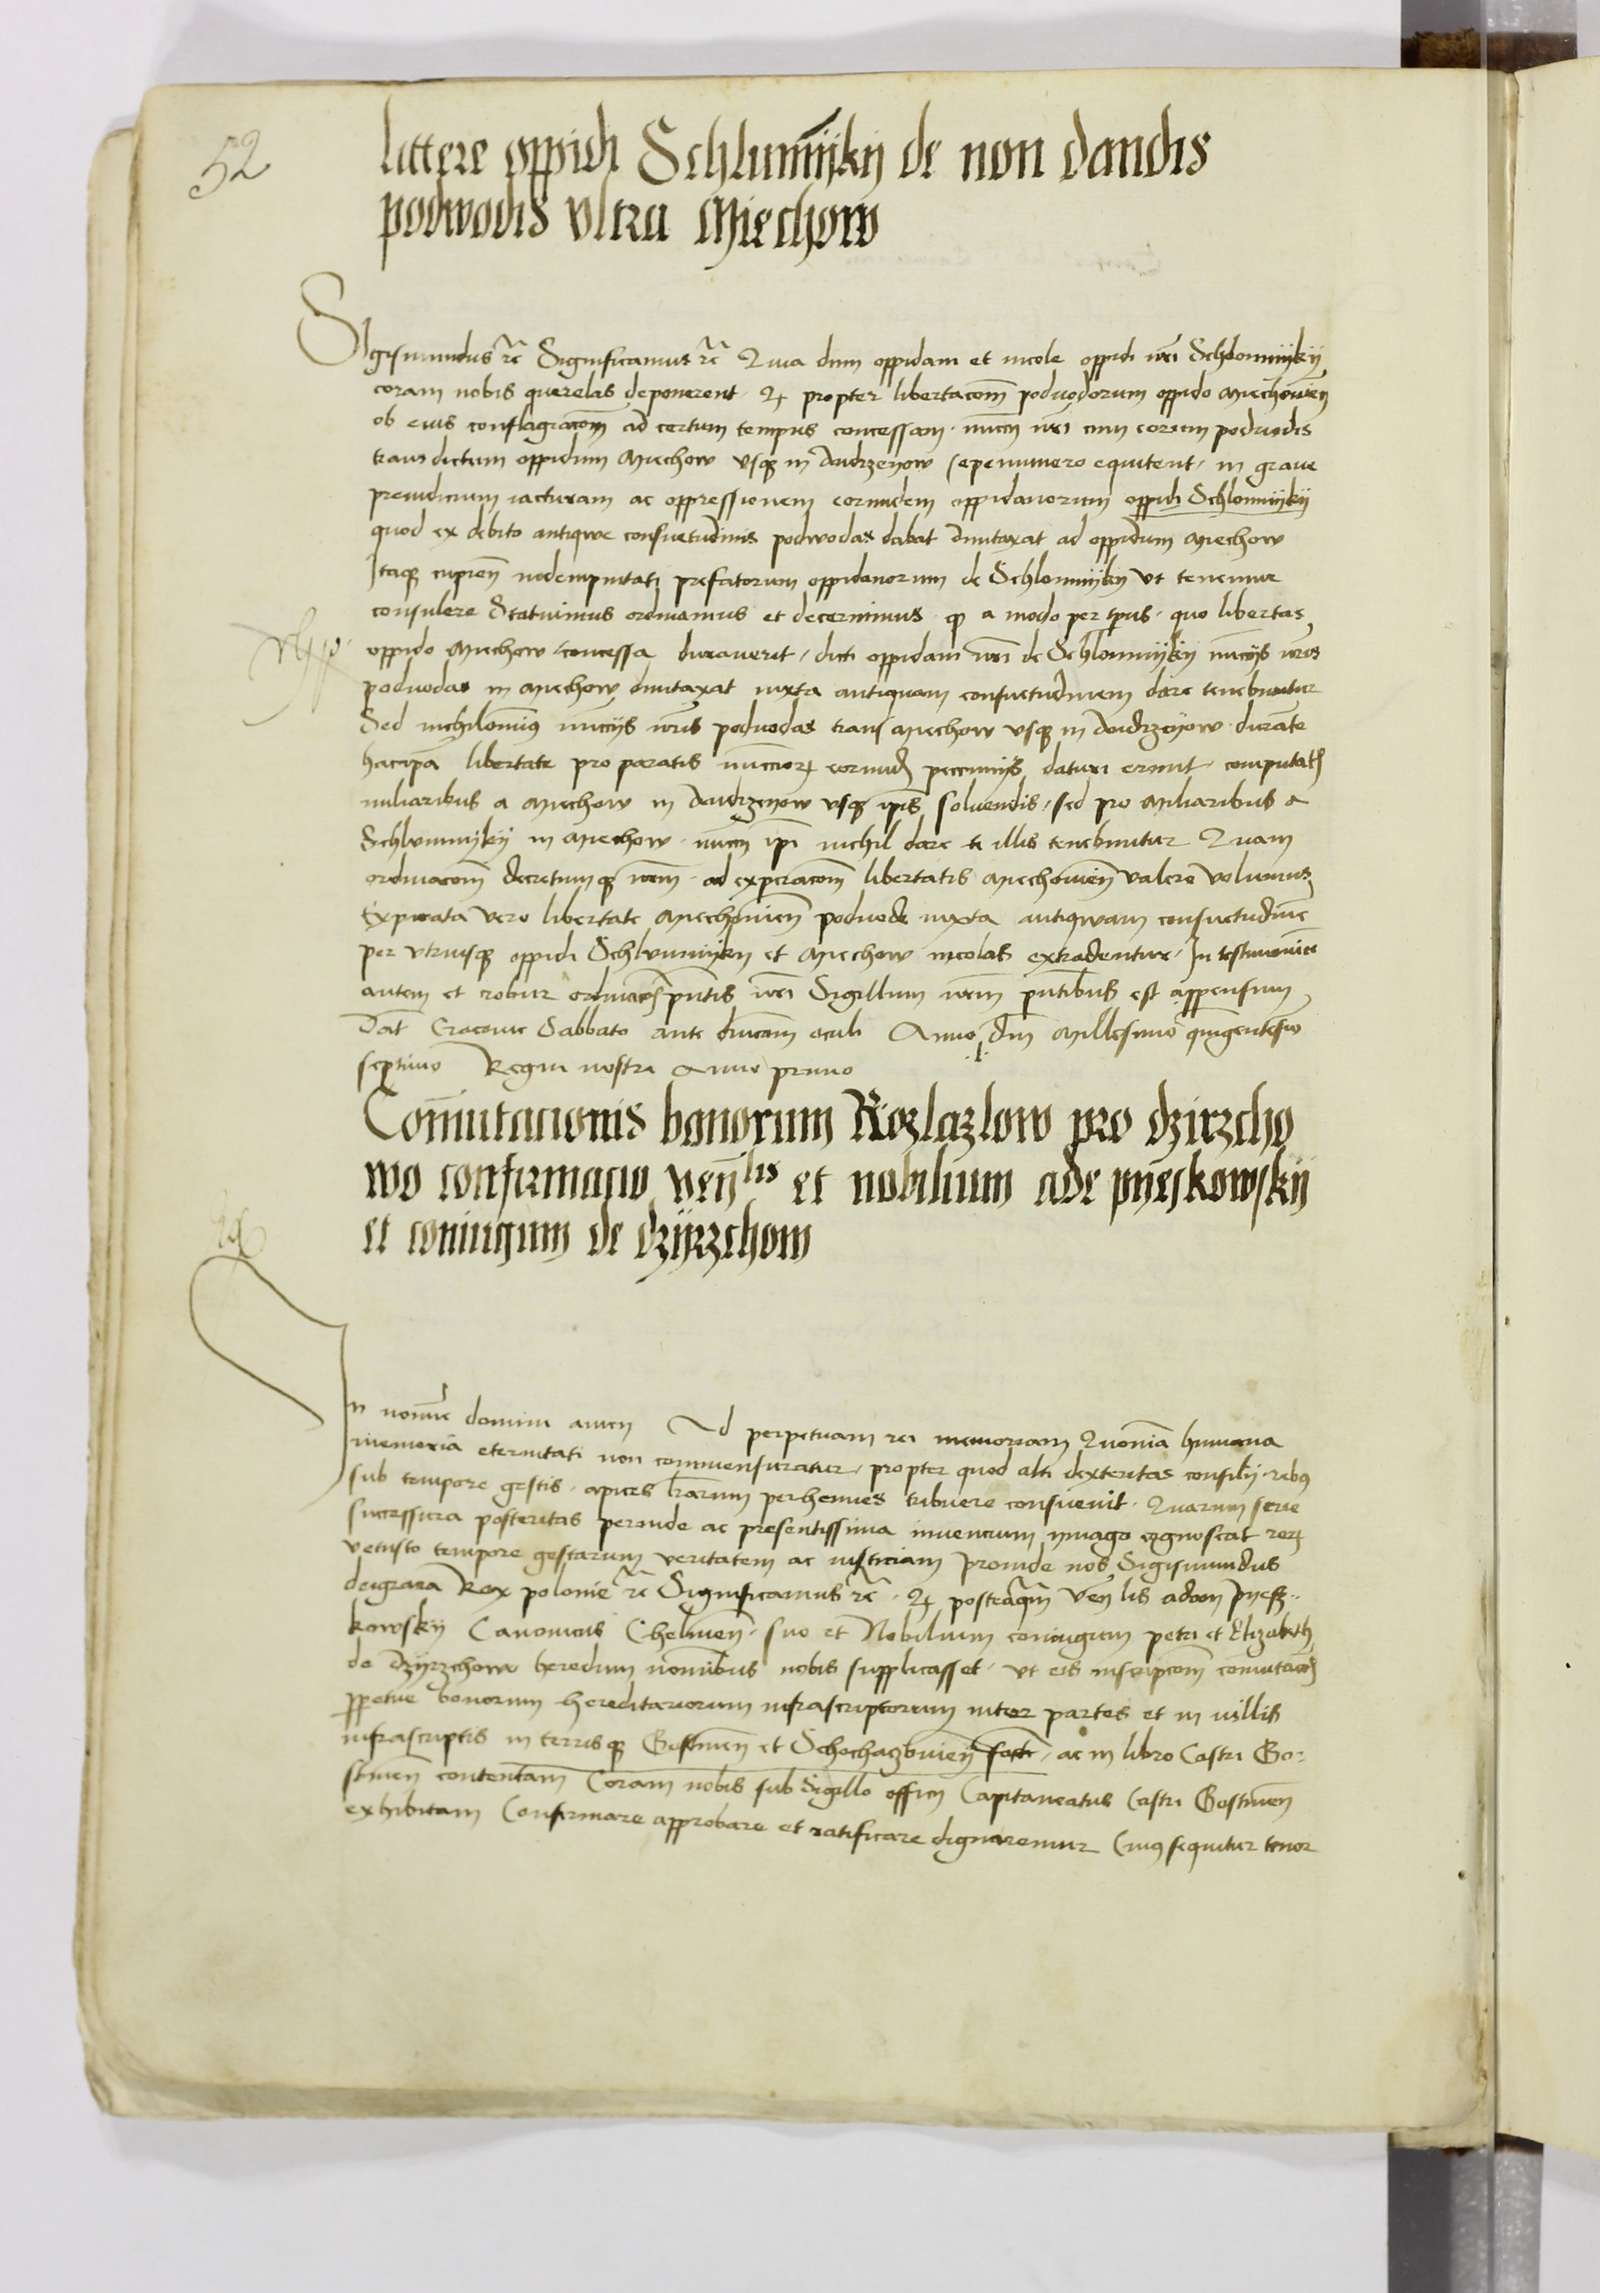 52
littere oppidi Schlumnijkij de non dandis
podwodis vltra Miechow
Sigismundus rc̃ Significamus rc̃ Quia dum oppidani et incole oppidi nr̃i Schlomnijkij
coram nobis querelas deponerent · Qꝫ propter libertacom̃ poduodorum oppido Miechowien̄
ob eius conflagracom̃ ad certum tempus concessam · nuncij nr̃i cum eorum poduodis
trans dictum oppidum Miechow vsqꝫ in Andrzeyow sepenumero equitent · in graue
preiudicium iacturam ac oppressionem eorundem oppidanorum oppidi Schlomnijkij
quod ex debito antique consuetudinis podwodas dabat duntaxat ad oppidum Miechow
Itaqꝫ cupien̄ indempnitati prefatorum oppidanorum de Schlomnijkij vt tenemur
consulere Statuimus ordinamus et decernimus · qꝫ a modo per tp̃us · quo libertas
oppido Miechow concessa durauerit / dicti oppidani nr̃i de Schlomnijkij nuncijs nr̃is
poduodas in Miechow duntaxat iuxta antiquam consuetudinem dare tenebuntur
Sed nichilomin9 nuncijs nr̃is poduodas trans Miechow vsqꝫ in Andrzeyow · durante
hac ip̃a libertate pro paratis nuncciorꝫ eorund̃ peccunijs daturi erunt · computatis
miliaribus a Miechow in Andrzeyow vsqꝫ ip̃is soluendis / sed pro Miliaribus a
Schlomnijkij in Miechow · nuncij ip̃i nichil dare illis tenebuntur Quam
ordinacom̃ decretumqꝫ nr̃um · ad expiracom̃ libertatis Miechowien̄ valere volumus
Expirata vero libertate Miechowien̄ poduode iuxta antiquam consuetudine̅
per vtriusqꝫ oppidi Schlomnijkij et Miechow incolas extradentur · In testimonium
autem et robur ordinacois pn̄tis nr̃i Sigillum nr̃um pn̄tibus est appensum
Dat̃ Cracouie Sabbato ante dn̄icam oculi Anno dn̄i Millesimo quingentesimo
septimo Regni nostri Anno primo
Com̄utacionis bonorum Rozlazlow pro dzirzcho
wo confirmacio ven̄lis et nobilium ade pyeskowskij
et coniugum de dzijrzchow
In nomine domini amen Ad perpetuam rei memoriam Quoniam humana
memoria eternitati non commensuratur / propter quod alti dexteritas consilij · rebus
sub tempore gestis · apices lr̃arum perhennes tribuere consueuit · Quarum serie
successura posteritas perinde ac presentissima inuencium imago cognoscat rerꝫ
vetusto tempore gestarum veritatem ac iusticiam Proinde nos Sigismundus
dei gracia Rex polonie rc̃ Significamus rc̃ · Qꝫ posteaqm̃ Ven̄lis adam Pyesz-
kowskij Canonicus Chelmen̄ · suo et Nobilium coniugum petri et Elizabeth
de Dzijrzchow heredum nominibus nobis supplicasset · vt eis inscripcom̃ comutacois
ꝑpetue bonorum hereditariorum infrascriptorum inter partes et in villis
infrascriptis in terrisqꝫ Gostinen̄ et Schochaczouien̄ fact̃ / ac in libro Castri Go-
stinen̄ contentam Coram nobis sub Sigillo officij Capitaneatus Castri Gostinen̄
exhibitam Confirmare approbare et ratificare dignaremur Cui9 sequitur tenor